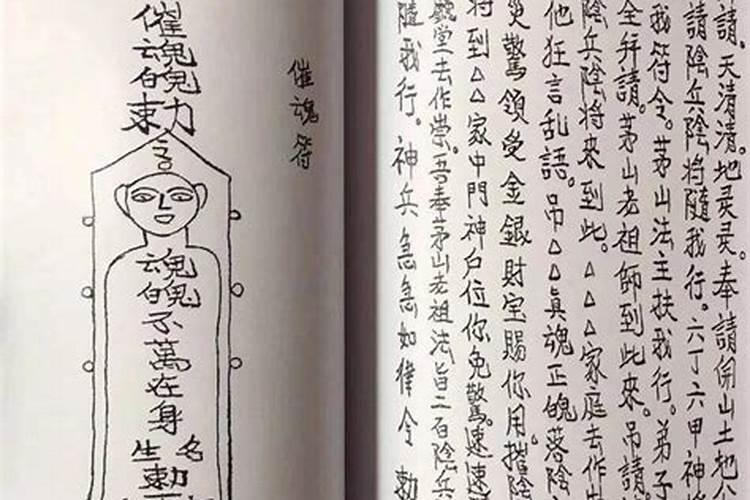 請。天清清。地灵灵。奉請開山土地公
請陰兵陰將隨我行。六丁六甲神將
我符令。茅山法主扶我行。弟子
全拜請。茅山老祖師到此來。吊請
陰兵陰將來到此。△△△家庭去作
他狂言乱語。吊△△真魂正魄落陰
災驚領受金銀財宝賜你用。摧陰
將到△△家中門神户位你免驚。速速
堂去作祟。吾奉茅山老祖法旨二百陰兵
隨我行。神兵急急如律令 勅
催魂符
催魂魄勅
魂魄不萬在身
名
勅
生